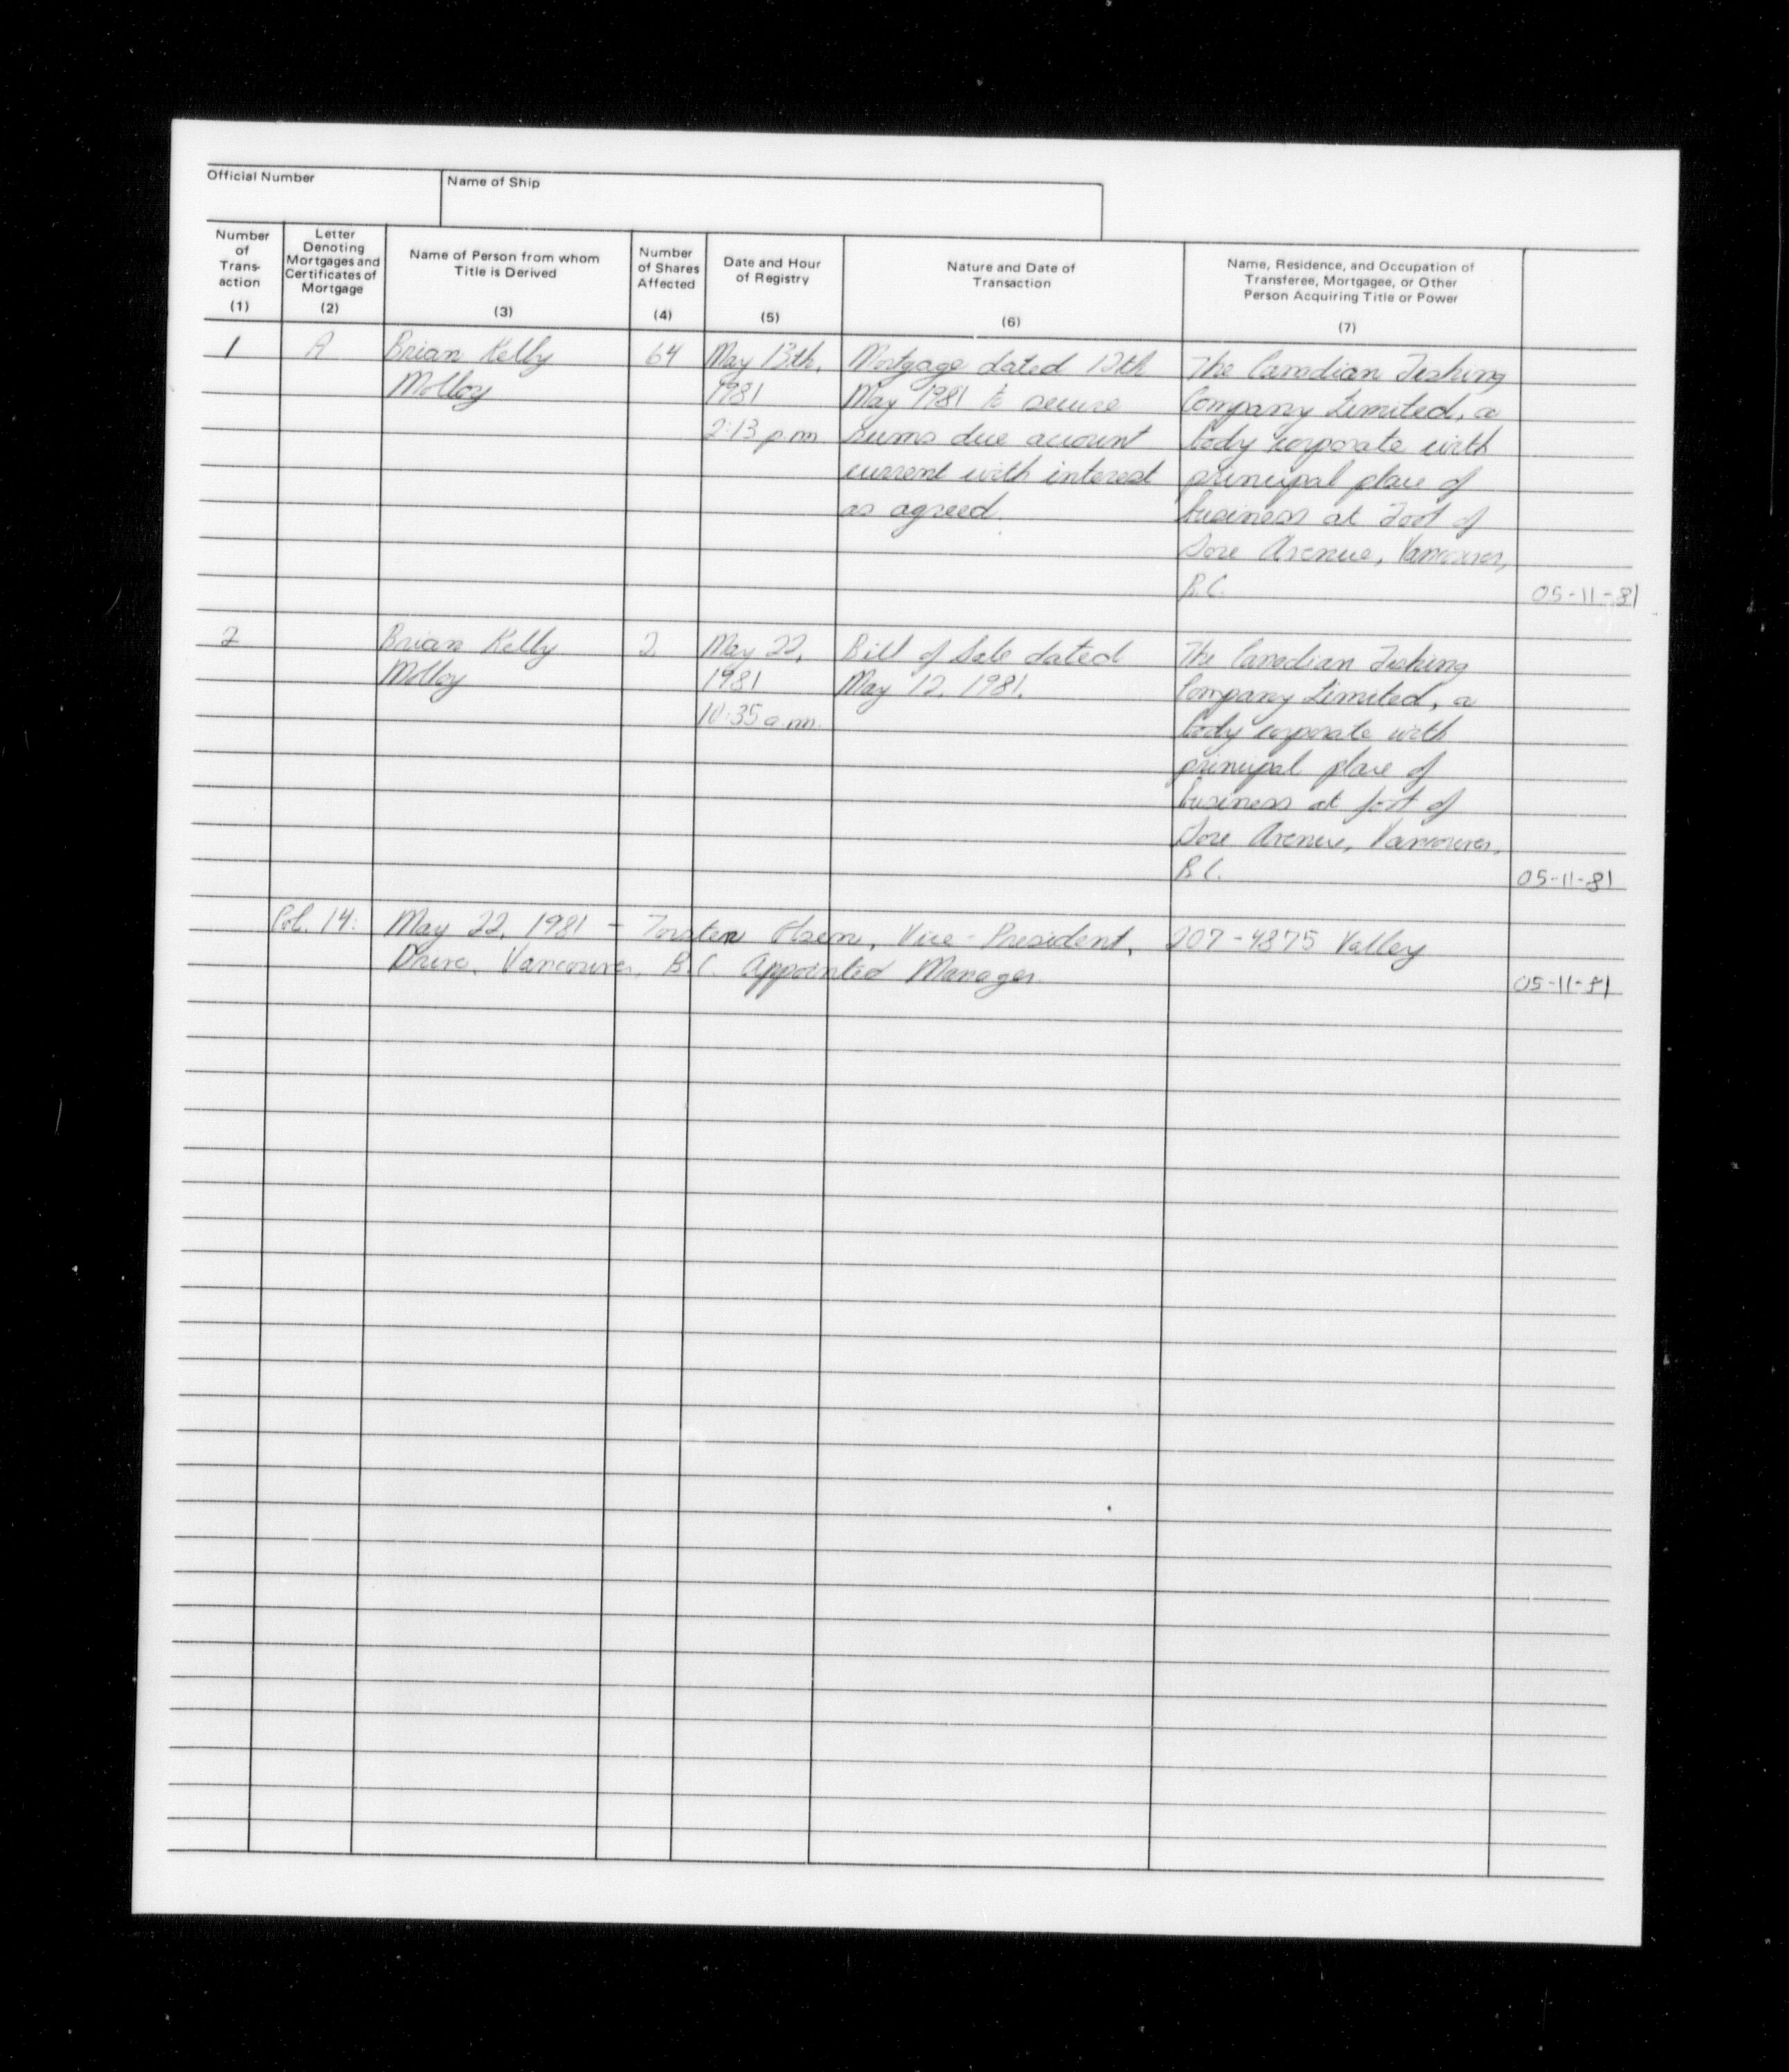 Official Number
Name of Ship
Number of Trans- action (1)
Letter Denoting Mortgages and Certificates of Mortgage (2)
Name of Person from whom Title is Derived (3)
Number of Shares Affected (4)
Date and Hour of Registry (5)
Nature and Date of Transaction (6)
Name, Residence, and Occupation of Transferee, Mortgagee, or Other Person Acquiring Title or Power (7)
1 A Brian Kelly 64 May 13th, Mortgage dated 12th The Canadian Fishing
Molloy 1981 May 1981 to secure Company Limited, a
2:13 p.m sums due account body corporate with
current with interest principal place of
as agreed. business at Foot of
Gore Avenue, Vancouver,
B.C. 05-11-81
2 Brian Kelly 2 May 22, Bill of Sale dated The Canadian Fishing
Molloy 1981 May 12, 1981. Company Limited, a
10:35 a.m. body corporate with
principal place of
business at foot of
Gore Avenue, Vancouver,
B.C. 05-11-81
Col. 14: May 22, 1981 - Torsten Olsen, Vice-President, 207-4875 Valley
Drive, Vancouver, B.C. Appointed Manager.
05-11-81